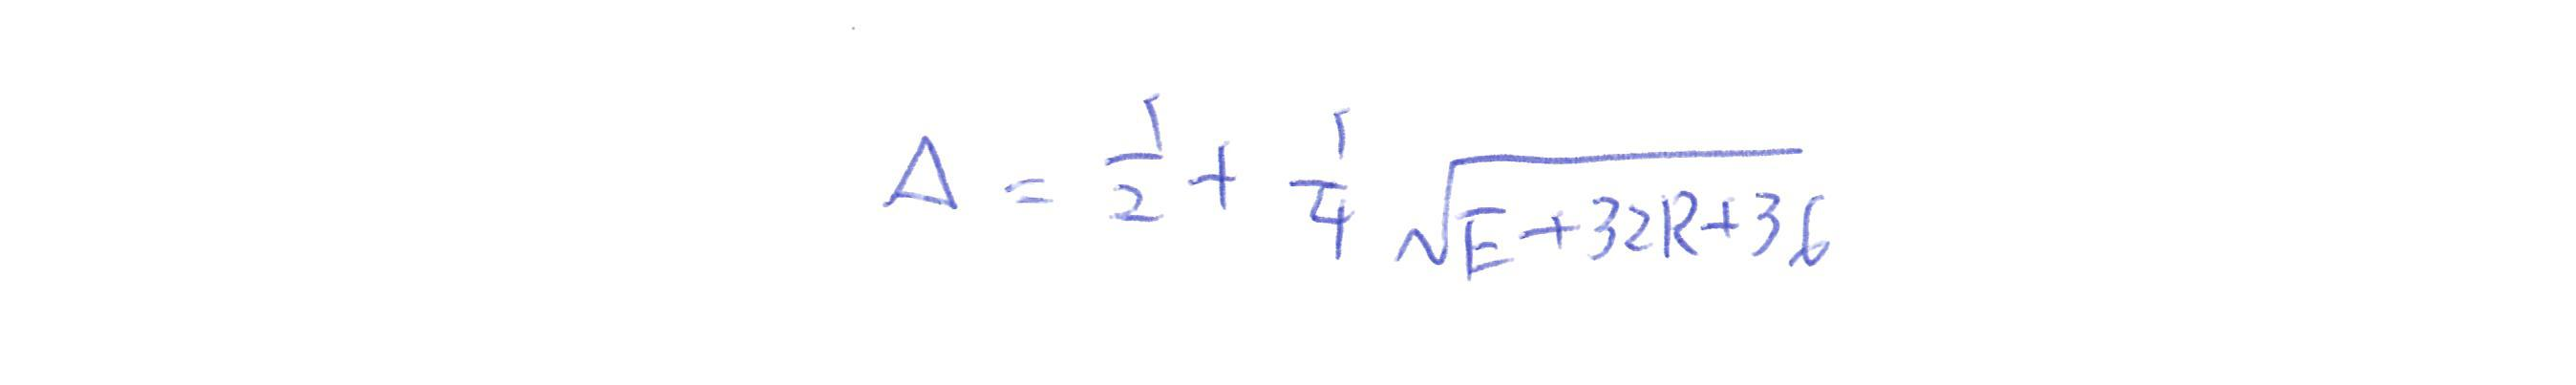 Δ = \frac{1}{2} + \frac{1}{4} \sqrt{E + 32R + 36}